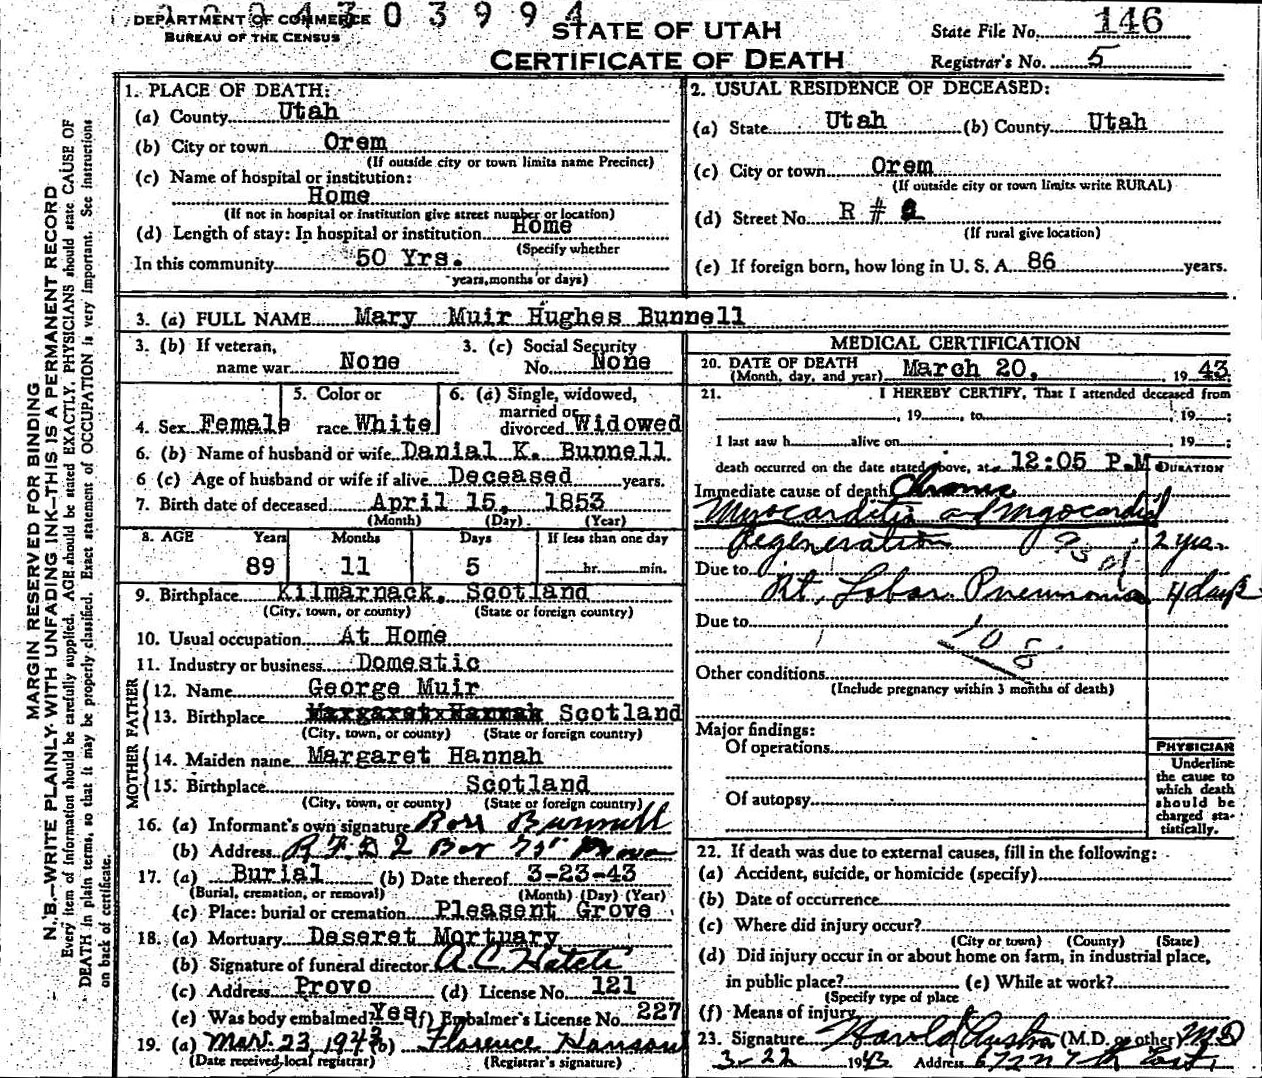 1004303994
DEPARTMENT OF COMMERCE
BUREAU OF THE CENSUS
STATE OF UTAH
CERTIFICATE OF DEATH
State File No. 146
Registrar's No. 5
MARGIN RESERVED FOR BINDING
N. B.—WRITE PLAINLY WITH UNFADING INK—THIS IS A PERMANENT RECORD
Every item of information should be carefully supplied. AGE should be stated EXACTLY. PHYSICIANS should state CAUSE OF
DEATH in plain terms, so that it may be properly classified. Exact statement of OCCUPATION is very important. See instructions
on back of certificate.
1. PLACE OF DEATH:
(a) County Utah
(b) City or town Orem
(If outside city or town limits name Precinct)
(c) Name of hospital or institution:
Home
(If not in hospital or institution give street number or location)
(d) Length of stay: In hospital or institution Home
(Specify whether
In this community 50 Yrs.
years, months or days)
2. USUAL RESIDENCE OF DECEASED:
(a) State Utah (b) County Utah
(c) City or town Orem
(If outside city or town limits write RURAL)
(d) Street No. R # 2
(If rural give location)
(e) If foreign born, how long in U. S. A. 86 years.
3. (a) FULL NAME Mary Muir Hughes Bunnell
3. (b) If veteran,
name war None
3. (c) Social Security
No. None
4. Sex Female
5. Color or
race White
6. (a) Single, widowed,
married or
divorced Widowed
6. (b) Name of husband or wife Danial K. Bunnell
6 (c) Age of husband or wife if alive Deceased years.
7. Birth date of deceased April 15, 1853
(Month) (Day) (Year)
8. AGE Years Months Days If less than one day
89 11 5 hr. min.
9. Birthplace Kilmarnack, Scotland
(City, town, or county) (State or foreign country)
10. Usual occupation At Home
11. Industry or business Domestic
FATHER
12. Name George Muir
13. Birthplace Margaret Hannah Scotland
(City, town, or county) (State or foreign country)
MOTHER
14. Maiden name Margaret Hannah
15. Birthplace Scotland
(City, town, or county) (State or foreign country)
16. (a) Informant's own signature Ross Bunnell
(b) Address R F D 2 Box Provo
17. (a) Burial (b) Date thereof 3-23-43
(Burial, cremation, or removal) (Month) (Day) (Year)
(c) Place: burial or cremation Pleasent Grove
18. (a) Mortuary Deseret Mortuary
(b) Signature of funeral director A.C. Hatch
(c) Address Provo (d) License No. 121
(e) Was body embalmed? Yes (f) Embalmer's License No. 227
19. (a) Mar. 23, 1943 (b) Florence Hanson
(Date received local registrar) (Registrar's signature)
MEDICAL CERTIFICATION
20. DATE OF DEATH
(Month, day, and year) March 20, 19 43
21. I HEREBY CERTIFY, That I attended deceased from
, 19 , to , 19 ;
I last saw h alive on , 19 ;
death occurred on the date stated above, at 12:05 P.M DURATION
Immediate cause of death Chronic
Myocarditis and Myocardial
Degeneration 93 d 2 yrs.
Due to
Rt. Lobar Pneumonia 4 days
Due to
108
Other conditions
(Include pregnancy within 3 months of death)
Major findings:
Of operations
Of autopsy
PHYSICIAN
Underline
the cause to
which death
should be
charged sta-
tistically.
22. If death was due to external causes, fill in the following:
(a) Accident, suicide, or homicide (specify)
(b) Date of occurrence
(c) Where did injury occur?
(City or town) (County) (State)
(d) Did injury occur in or about home on farm, in industrial place,
in public place? (e) While at work?
(Specify type of place
(f) Means of injury
23. Signature Harold Austin (M.D. or other) M D
3-22 1943 Address 672 N 7th East,